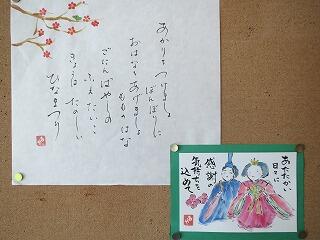 あかりをつけましょ
ぼんぼりに
おはなをあげましょ
もものはな
ごにんばやしの
ふえたいこ
きょうはたのしい
ひなまつり
あたたかい
日々に
感謝の
気持ちを
込めて